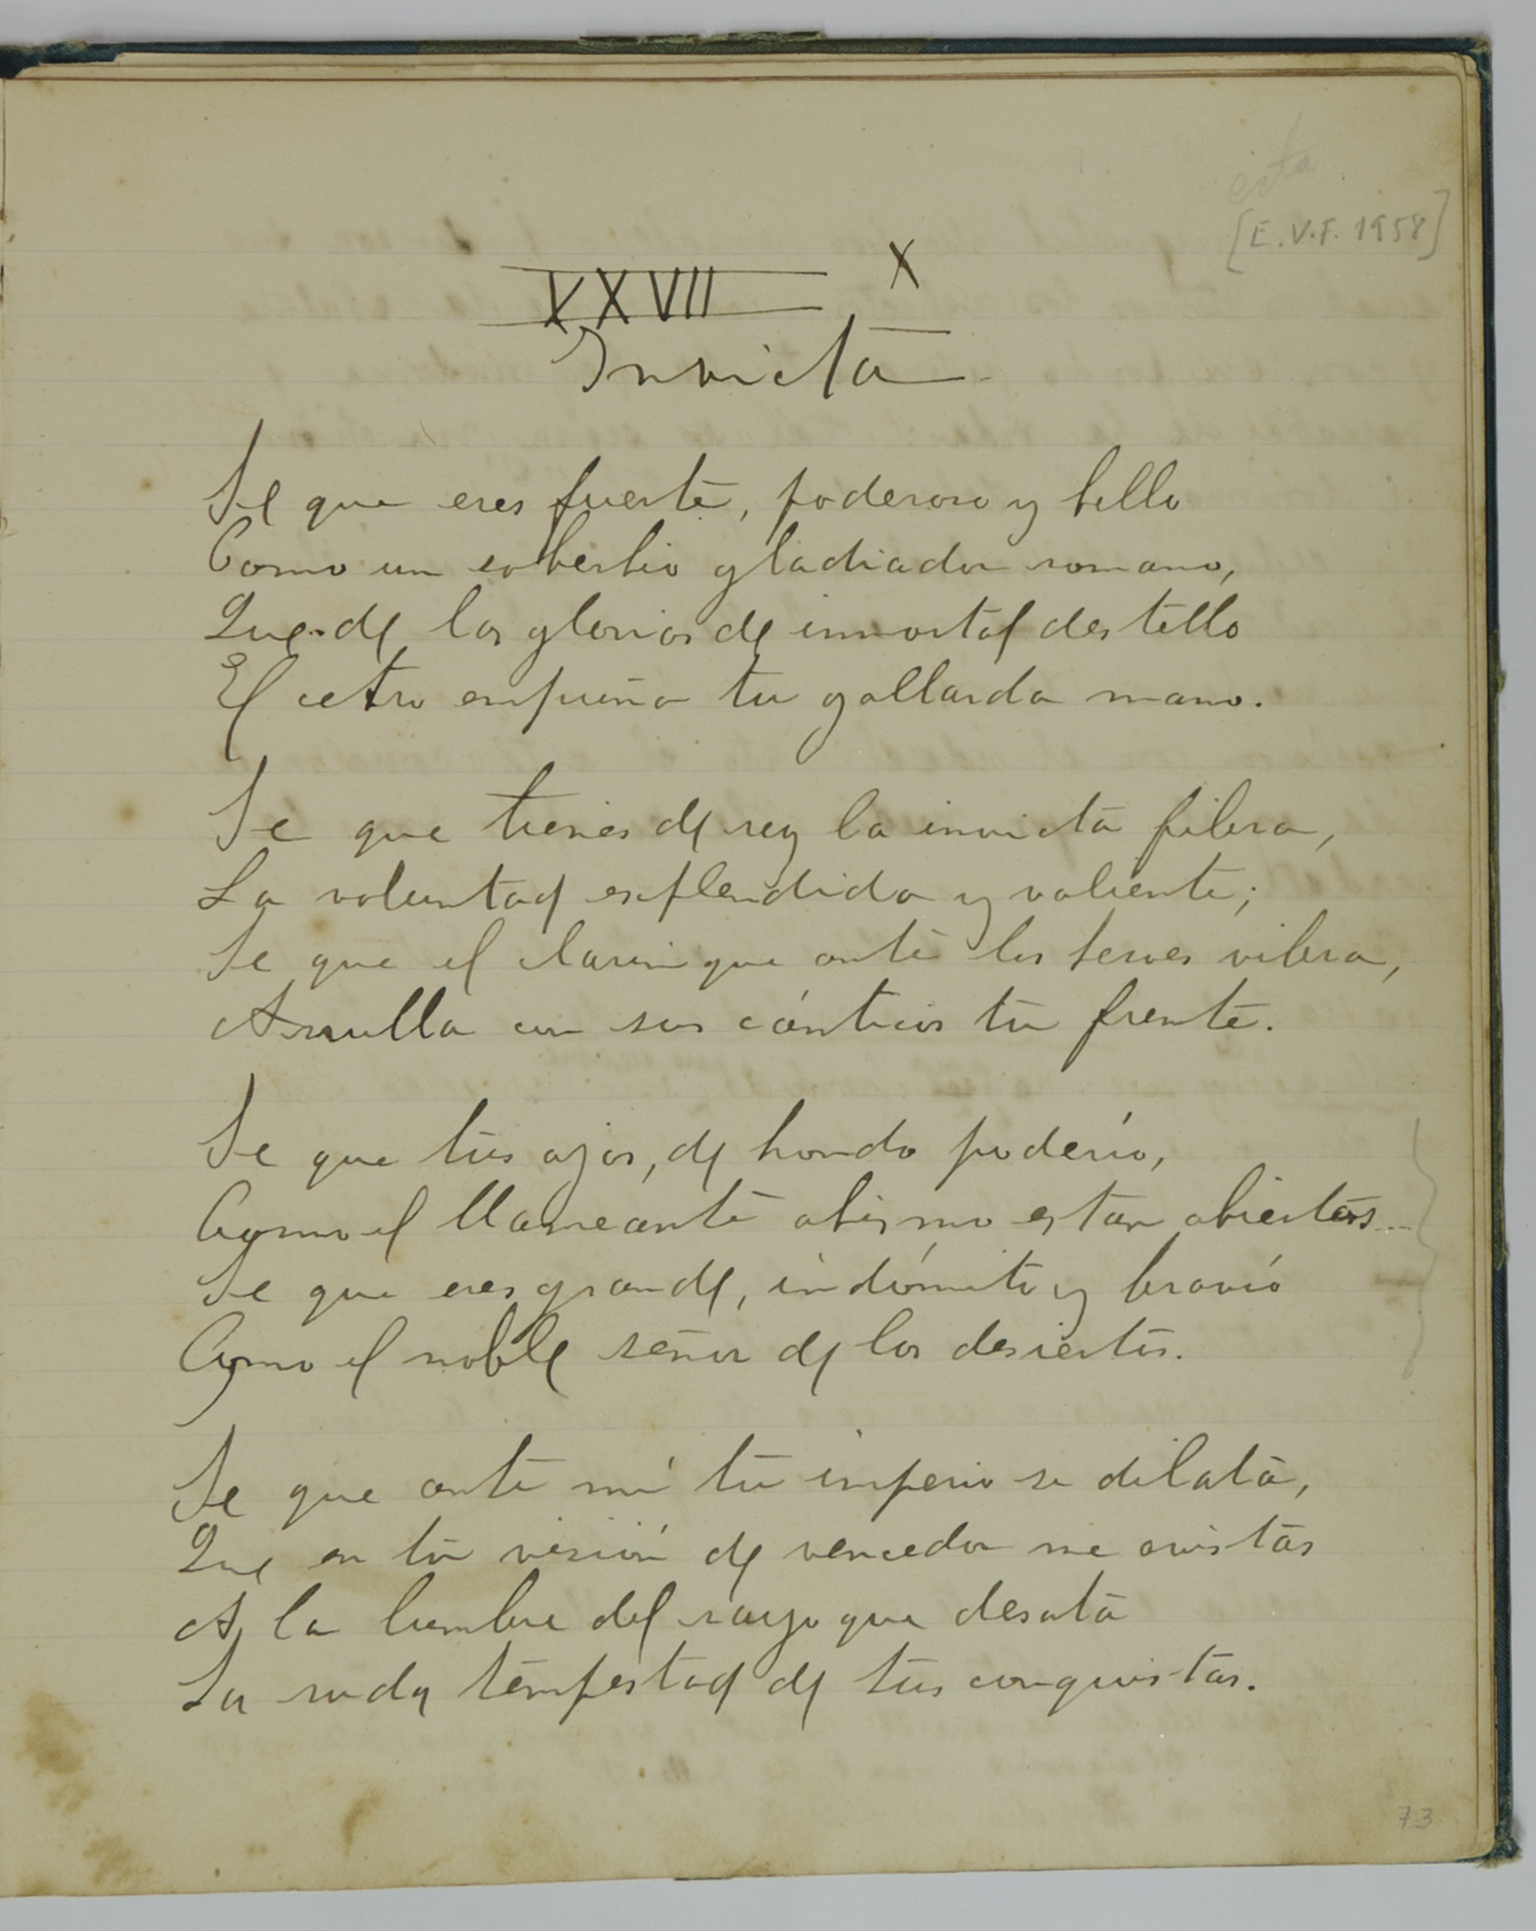 esta
[E.V.F. 1958]
XXVII X
Invicta
Se que eres fuerte, poderoso y bello
Como un soberbio gladiador romano,
Que de las glorias de inmortal destello
El cetro empuña tu gallarda mano.
Se que tienes de rey la invicta fibra,
La voluntad esplendida y valiente;
Se que el clarin que ante los heroes vibra,
Arrulla con sus cánticos tu frente.
Se que tus ojos, de hondo poderío,
Como el llameante abismo estan abiertos...
Se que eres grande, indómito y bravío
Como el noble señor de los desiertos.
Se que ante mí tu imperio se dilata,
Que en tu visión de vencedor me avistas
A la lumbre del rayo que desata
La ruda tempestad de tus conquistas.
73